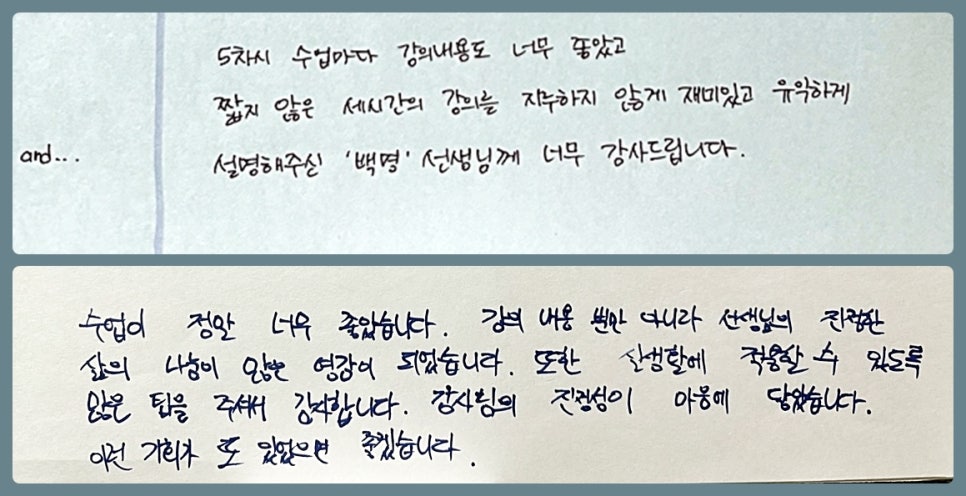 5차시 수업마다 강의내용도 너무 좋았고
짧지 않은 세시간의 강의를 지누하지 않게 재미있고 유익하게
and... 설명해주신 '백명' 선생님께 너무 감사드립니다.
수업이 정말 너무 좋았습니다. 강의 내용 뿐만 아니라 선생님의 진정한
삶의 나눔이 많은 영감이 되었습니다. 또한 실생활에 적용할 수 있도록
많은 팁을 주셔서 감사합니다. 강사님의 진정성이 마음에 닿았습니다.
이런 기회가 또 있었으면 좋겠습니다.